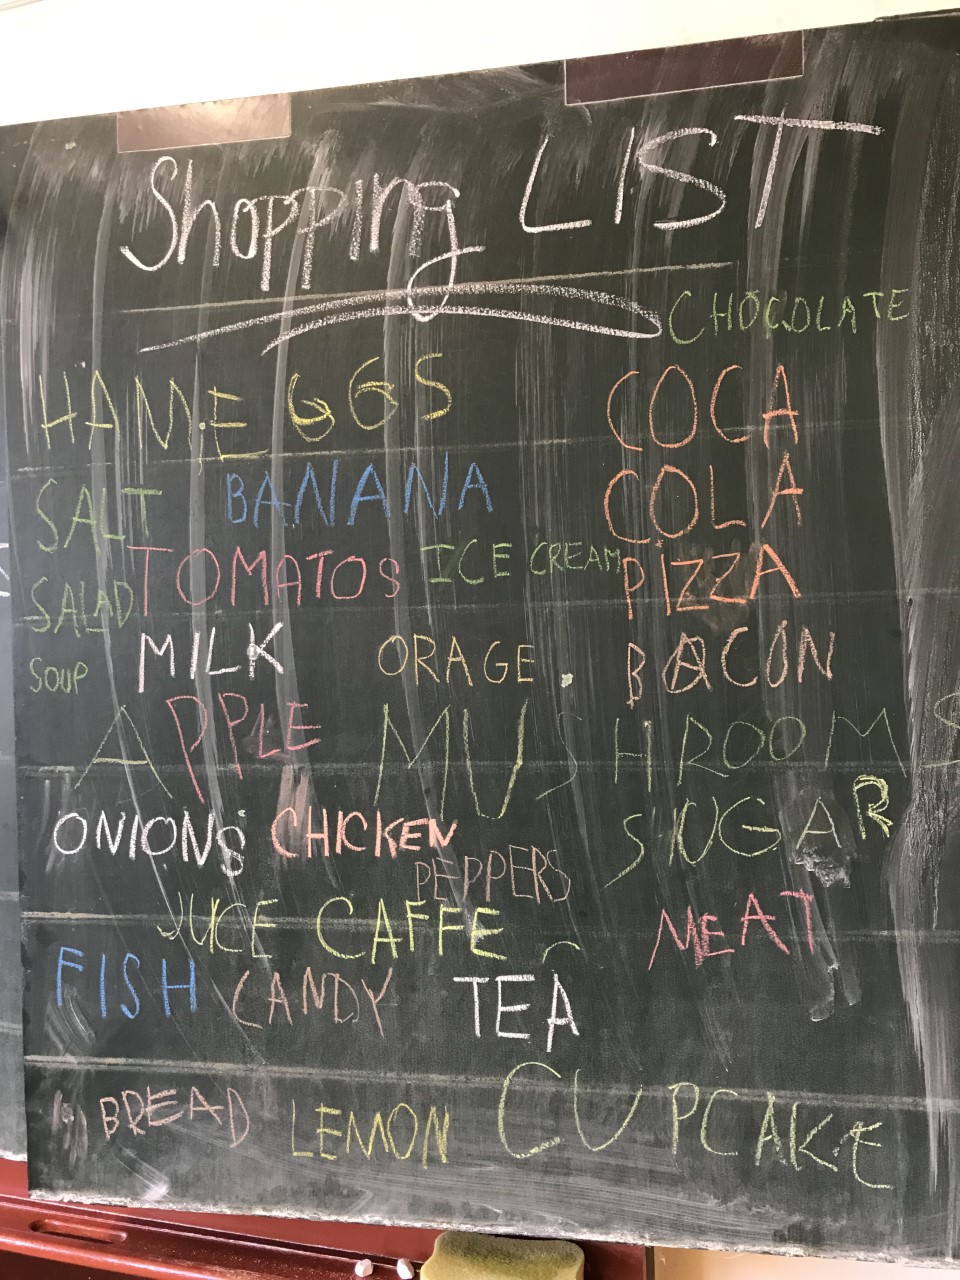 Shopping LIST
CHOCOLATE
HAM EGGS COCA
SALT BANANA COLA
SALAD TOMATOS ICE CREAM PIZZA
SOUP MILK ORAGE BACON
APPLE MUSHROOMS
ONIONS CHICKEN SUGAR
PEPPERS
JUICE CAFFE MEAT
FISH CANDY TEA
BREAD LEMON CUPCAKE